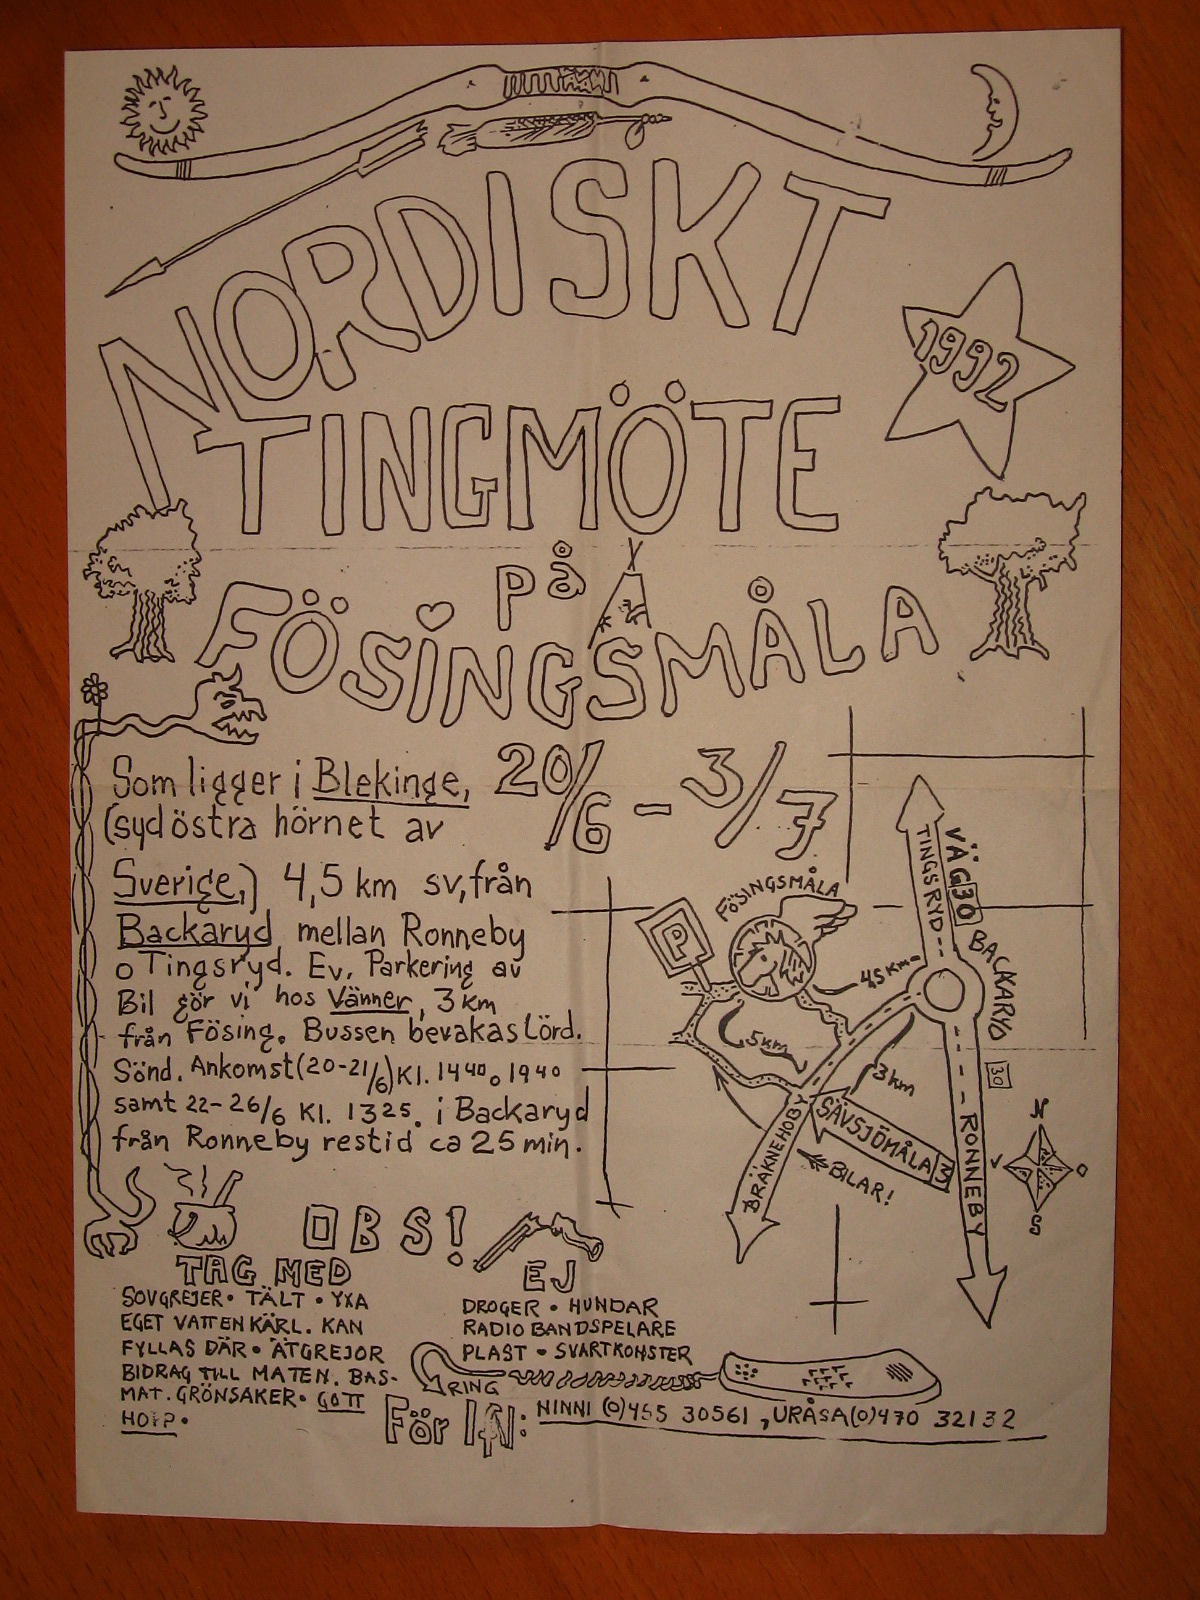 NORDISKT
1992
TINGMÖTE
på
FÖSINGSMÅLA
20/6 - 3/7
Som ligger i Blekinge,
(sydöstra hörnet av
Sverige,) 4,5 km sv, från
Backaryd mellan Ronneby
o Tingsryd. Ev. Parkering av
Bil gör vi hos Vänner, 3 km
från Fösing. Bussen bevakas Lörd.
Sönd. Ankomst (20-21/6) Kl. 1440 o 1940
samt 22-26/6 Kl. 1325. i Backaryd
från Ronneby restid ca 25 min.
VÄG 30
TINGSRYD
FÖSINGSMÅLA
P
BACKARYD
4,5 km
5 km
3 km
30
SÄVSJÖMÅLA 3
BRÄKNEHOBY
BILAR!
RONNEBY
N
V O
S
OBS!
TAG MED
SOVGREJER • TÄLT • YXA
EGET VATTENKÄRL. KAN
FYLLAS DÄR • ÄTGREJOR
BIDRAG TILL MATEN. BAS-
MAT. GRÖNSAKER • GOTT
EJ
DROGER • HUNDAR
RADIO BANDSPELARE
PLAST • SVARTKONSTER
RING
För IN: NINNI (0)455 30561, URÅSA (0)470 32132